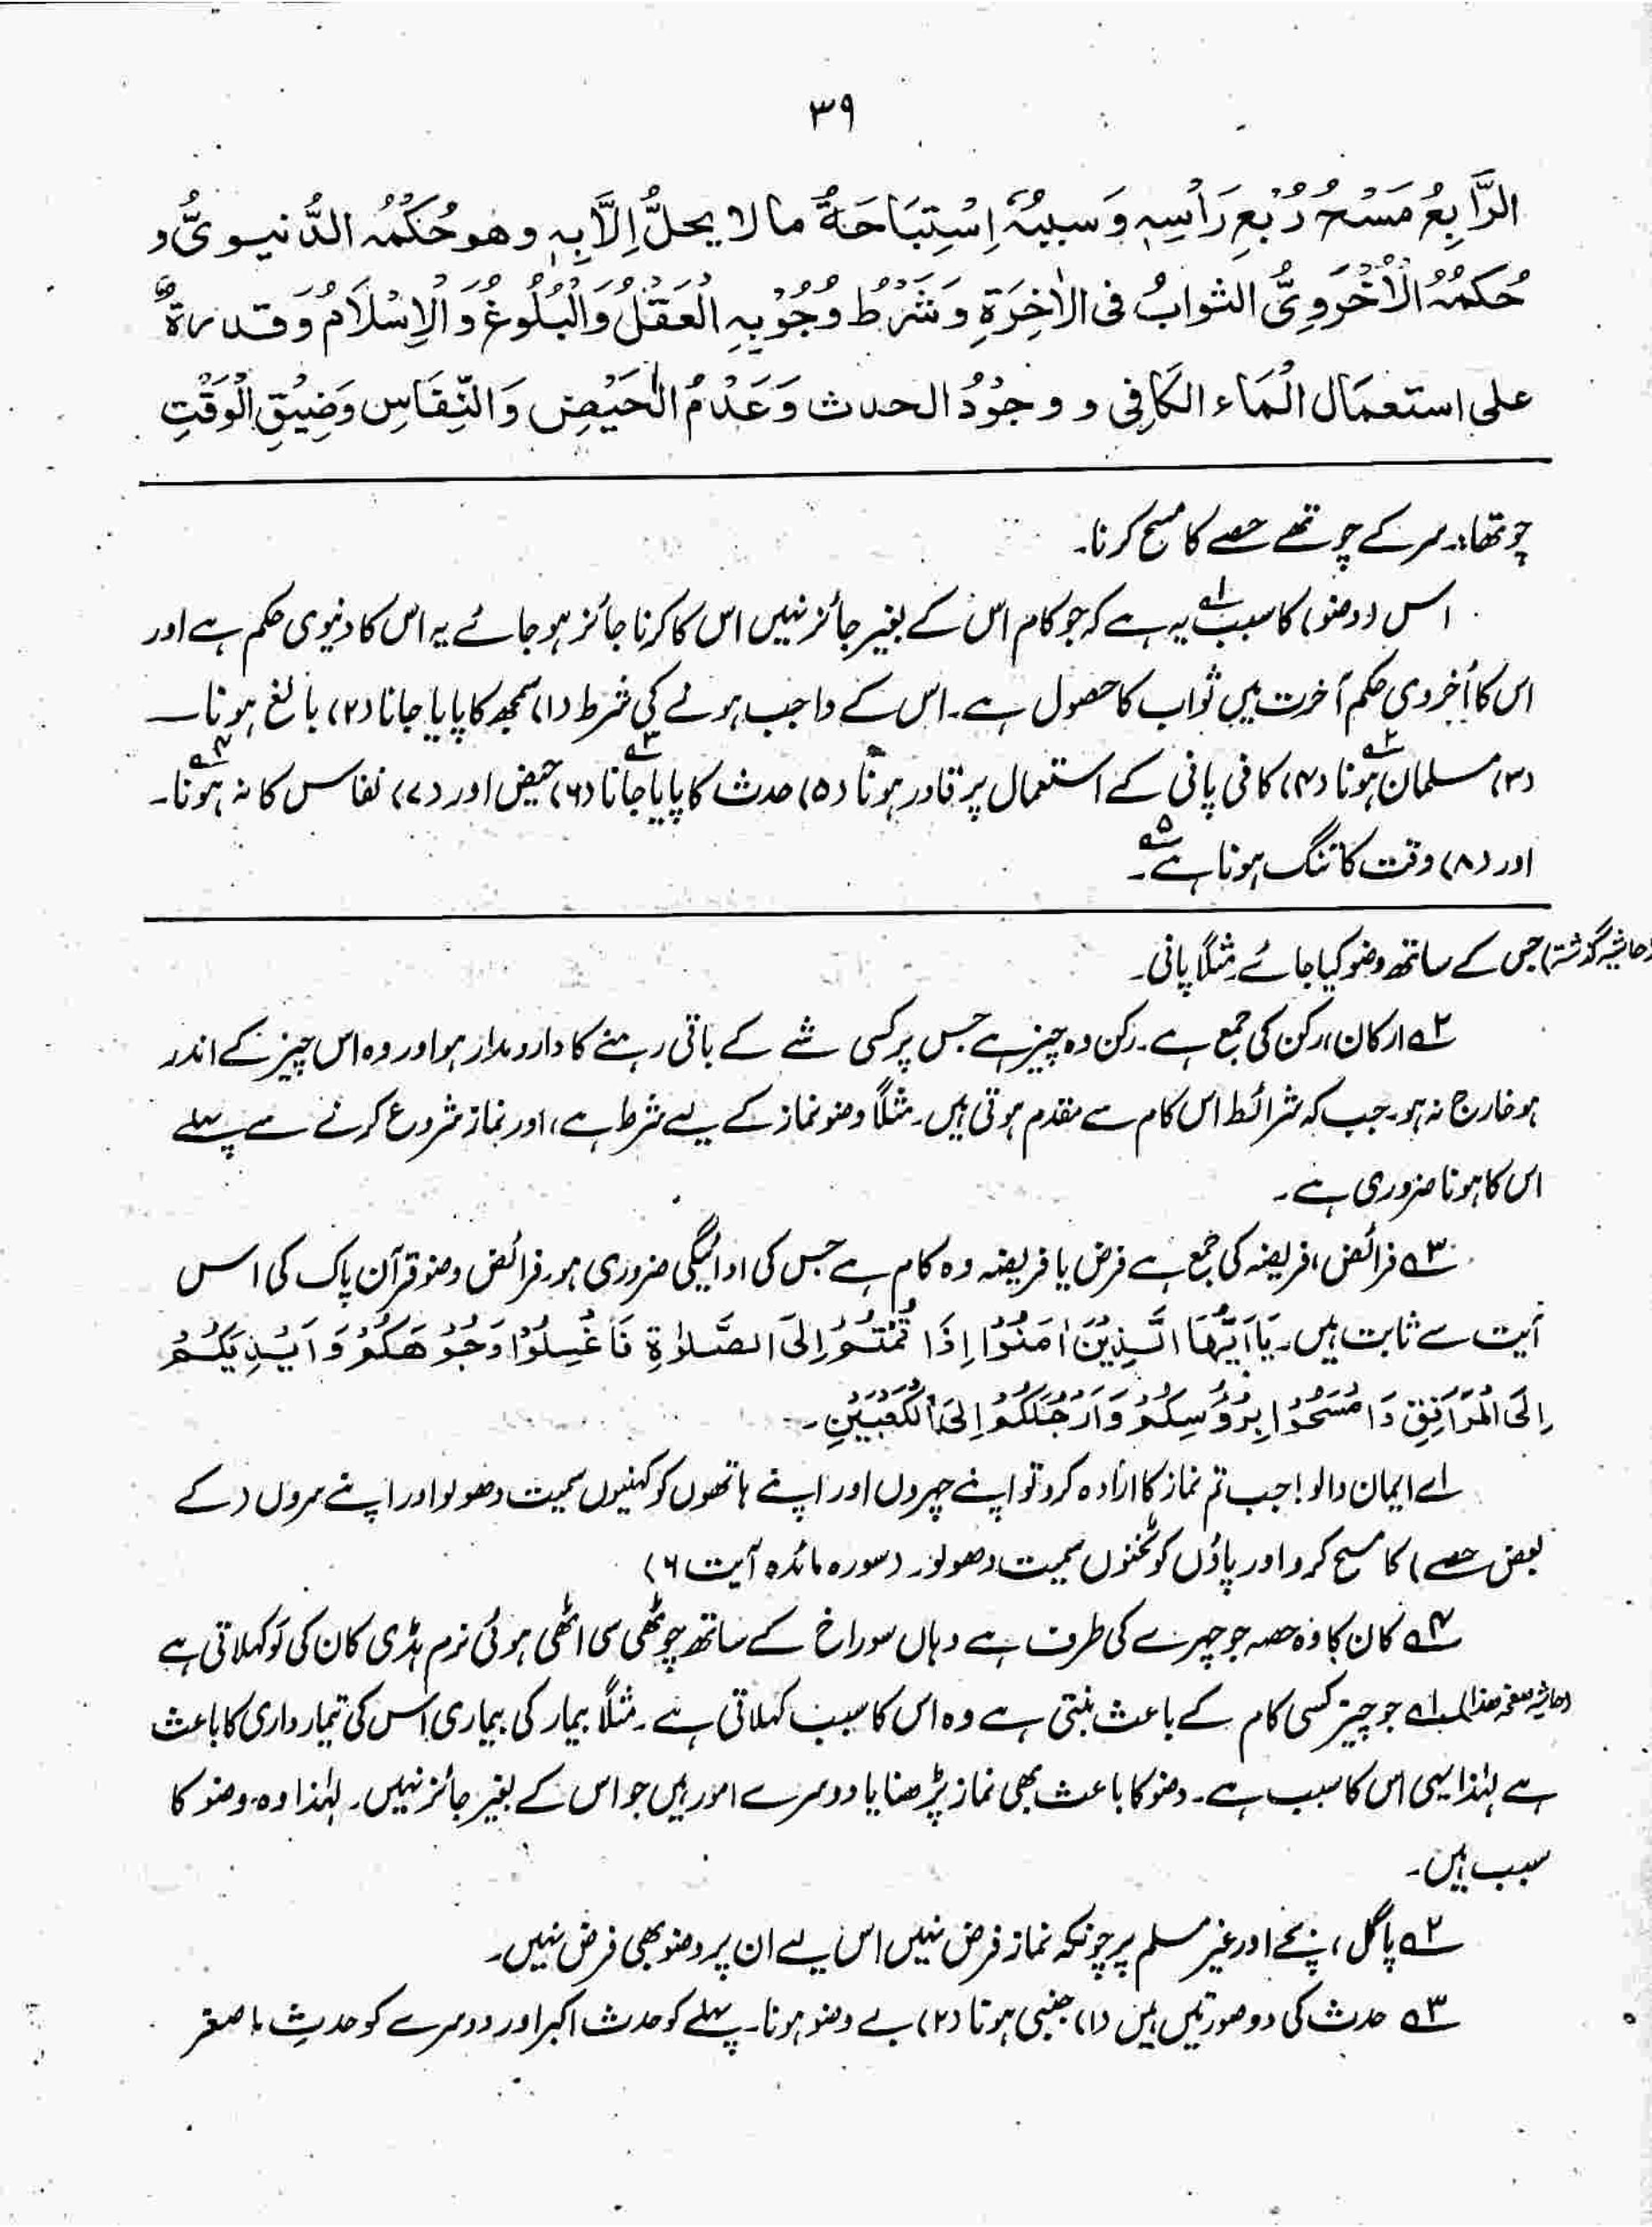 ۳۹
الرَّابِعُ مَسْحُ رُبْعِ رَأْسِهٖ وَسببُهٗ اِسْتِبَاحَةُ مالا يحلُّ اِلَّا بِهٖ وهو حُكْمُهُ الدُّنيوىُّ و
حُكْمُهُ الْاُخْرَوِىُّ الثوابُ فى الاٰخِرَةِ وَشَرْطُ وُجُوْبِهِ الْعَقْلُ وَالْبُلُوغُ وَالْاِسْلَامُ وَقدرةٌ
على استعمَال الْمَاء الكَافِى و وجُوْدُ الحدث وَعَدْمُ الْحَيْضِ وَالنِّفَاسِ وَضِيْقِ الْوَقْتِ
چوتھا: سر کے چوتھے حصے کا مسح کرنا۔
اس (وضو) کا سبب۱ یہ ہے کہ جو کام اس کے بغیر جائز نہیں اس کا کرنا جائز ہو جائے یہ اس کا دنیوی حکم ہے اور
اس کا اُخروی حکم آخرت میں ثواب کا حصول ہے۔ اس کے واجب ہونے کی شرط (۱) سمجھ کا پایا جانا (۲) بالغ ہونا
(۳) مسلمان ہونا۲ (۴) کافی پانی کے استعمال پر قادر ہونا (۵) حدث کا پایا جانا۳ (۶) حیض اور (۷) نفاس کا نہ ہونا۴۔
اور (۸) وقت کا تنگ ہونا ہے۵۔
(حاشیہ گذشتہ) جس کے ساتھ وضو کیا جائے مثلاً پانی۔
۲؎ ارکان، رکن کی جمع ہے۔ رکن وہ چیز ہے جس پر کسی شے کے باقی رہنے کا دارومدار ہو اور وہ اس چیز کے اندر
ہو خارج نہ ہو۔ جب کہ شرائط اس کام سے مقدم ہوتی ہیں۔ مثلاً وضو نماز کے لیے شرط ہے، اور نماز شروع کرنے سے پہلے
اس کا ہونا ضروری ہے۔
۳؎ فرائض، فریضہ کی جمع ہے فرض یا فریضہ وہ کام ہے جس کی ادائیگی ضروری ہو۔ فرائض وضو قرآن پاک کی اس
آیت سے ثابت ہیں۔ يَااَيُّهَا الَّذِيْنَ اٰمَنُوْا اِذَا قُمْتُمْ اِلَى الصَّلٰوةِ فَاغْسِلُوْا وُجُوْهَكُمْ وَاَيْدِيَكُمْ
اِلَى الْمَرَافِقِ وَامْسَحُوْا بِرُؤُسِكُمْ وَاَرْجُلَكُمْ اِلَى الْكَعْبَيْنِ۔
اے ایمان والو! جب تم نماز کا ارادہ کرو تو اپنے چہروں اور اپنے ہاتھوں کو کہنیوں سمیت دھولو اور اپنے سروں (کے
بعض حصے) کا مسح کرو اور پاؤں کو ٹخنوں سمیت دھولو۔ (سورہ مائدہ آیت ۶)
۴؎ کان کا وہ حصہ جو چہرے کی طرف ہے وہاں سوراخ کے ساتھ چوٹھی سی اٹھی ہوئی نرم ہڈی کان کی لَو کہلاتی ہے
(حاشیہ صفحہ ھذا) ۱؎ جو چیز کسی کام کے باعث بنتی ہے وہ اس کا سبب کہلاتی ہے۔ مثلاً بیمار کی بیماری اس کی تیمارداری کا باعث
ہے لہٰذا یہی اس کا سبب ہے۔ وضو کا باعث بھی نماز پڑھنا یا دوسرے امور ہیں جو اس کے بغیر جائز نہیں۔ لہٰذا وہ وضو کا
سبب ہیں۔
۲؎ پاگل، بچے اور غیر مسلم پر چونکہ نماز فرض نہیں اس لیے ان پر وضو بھی فرض نہیں۔
۳؎ حدث کی دو صورتیں ہیں (۱) جنبی ہونا (۲) بے وضو ہونا۔ پہلے کو حدث اکبر اور دوسرے کو حدثِ اصغر